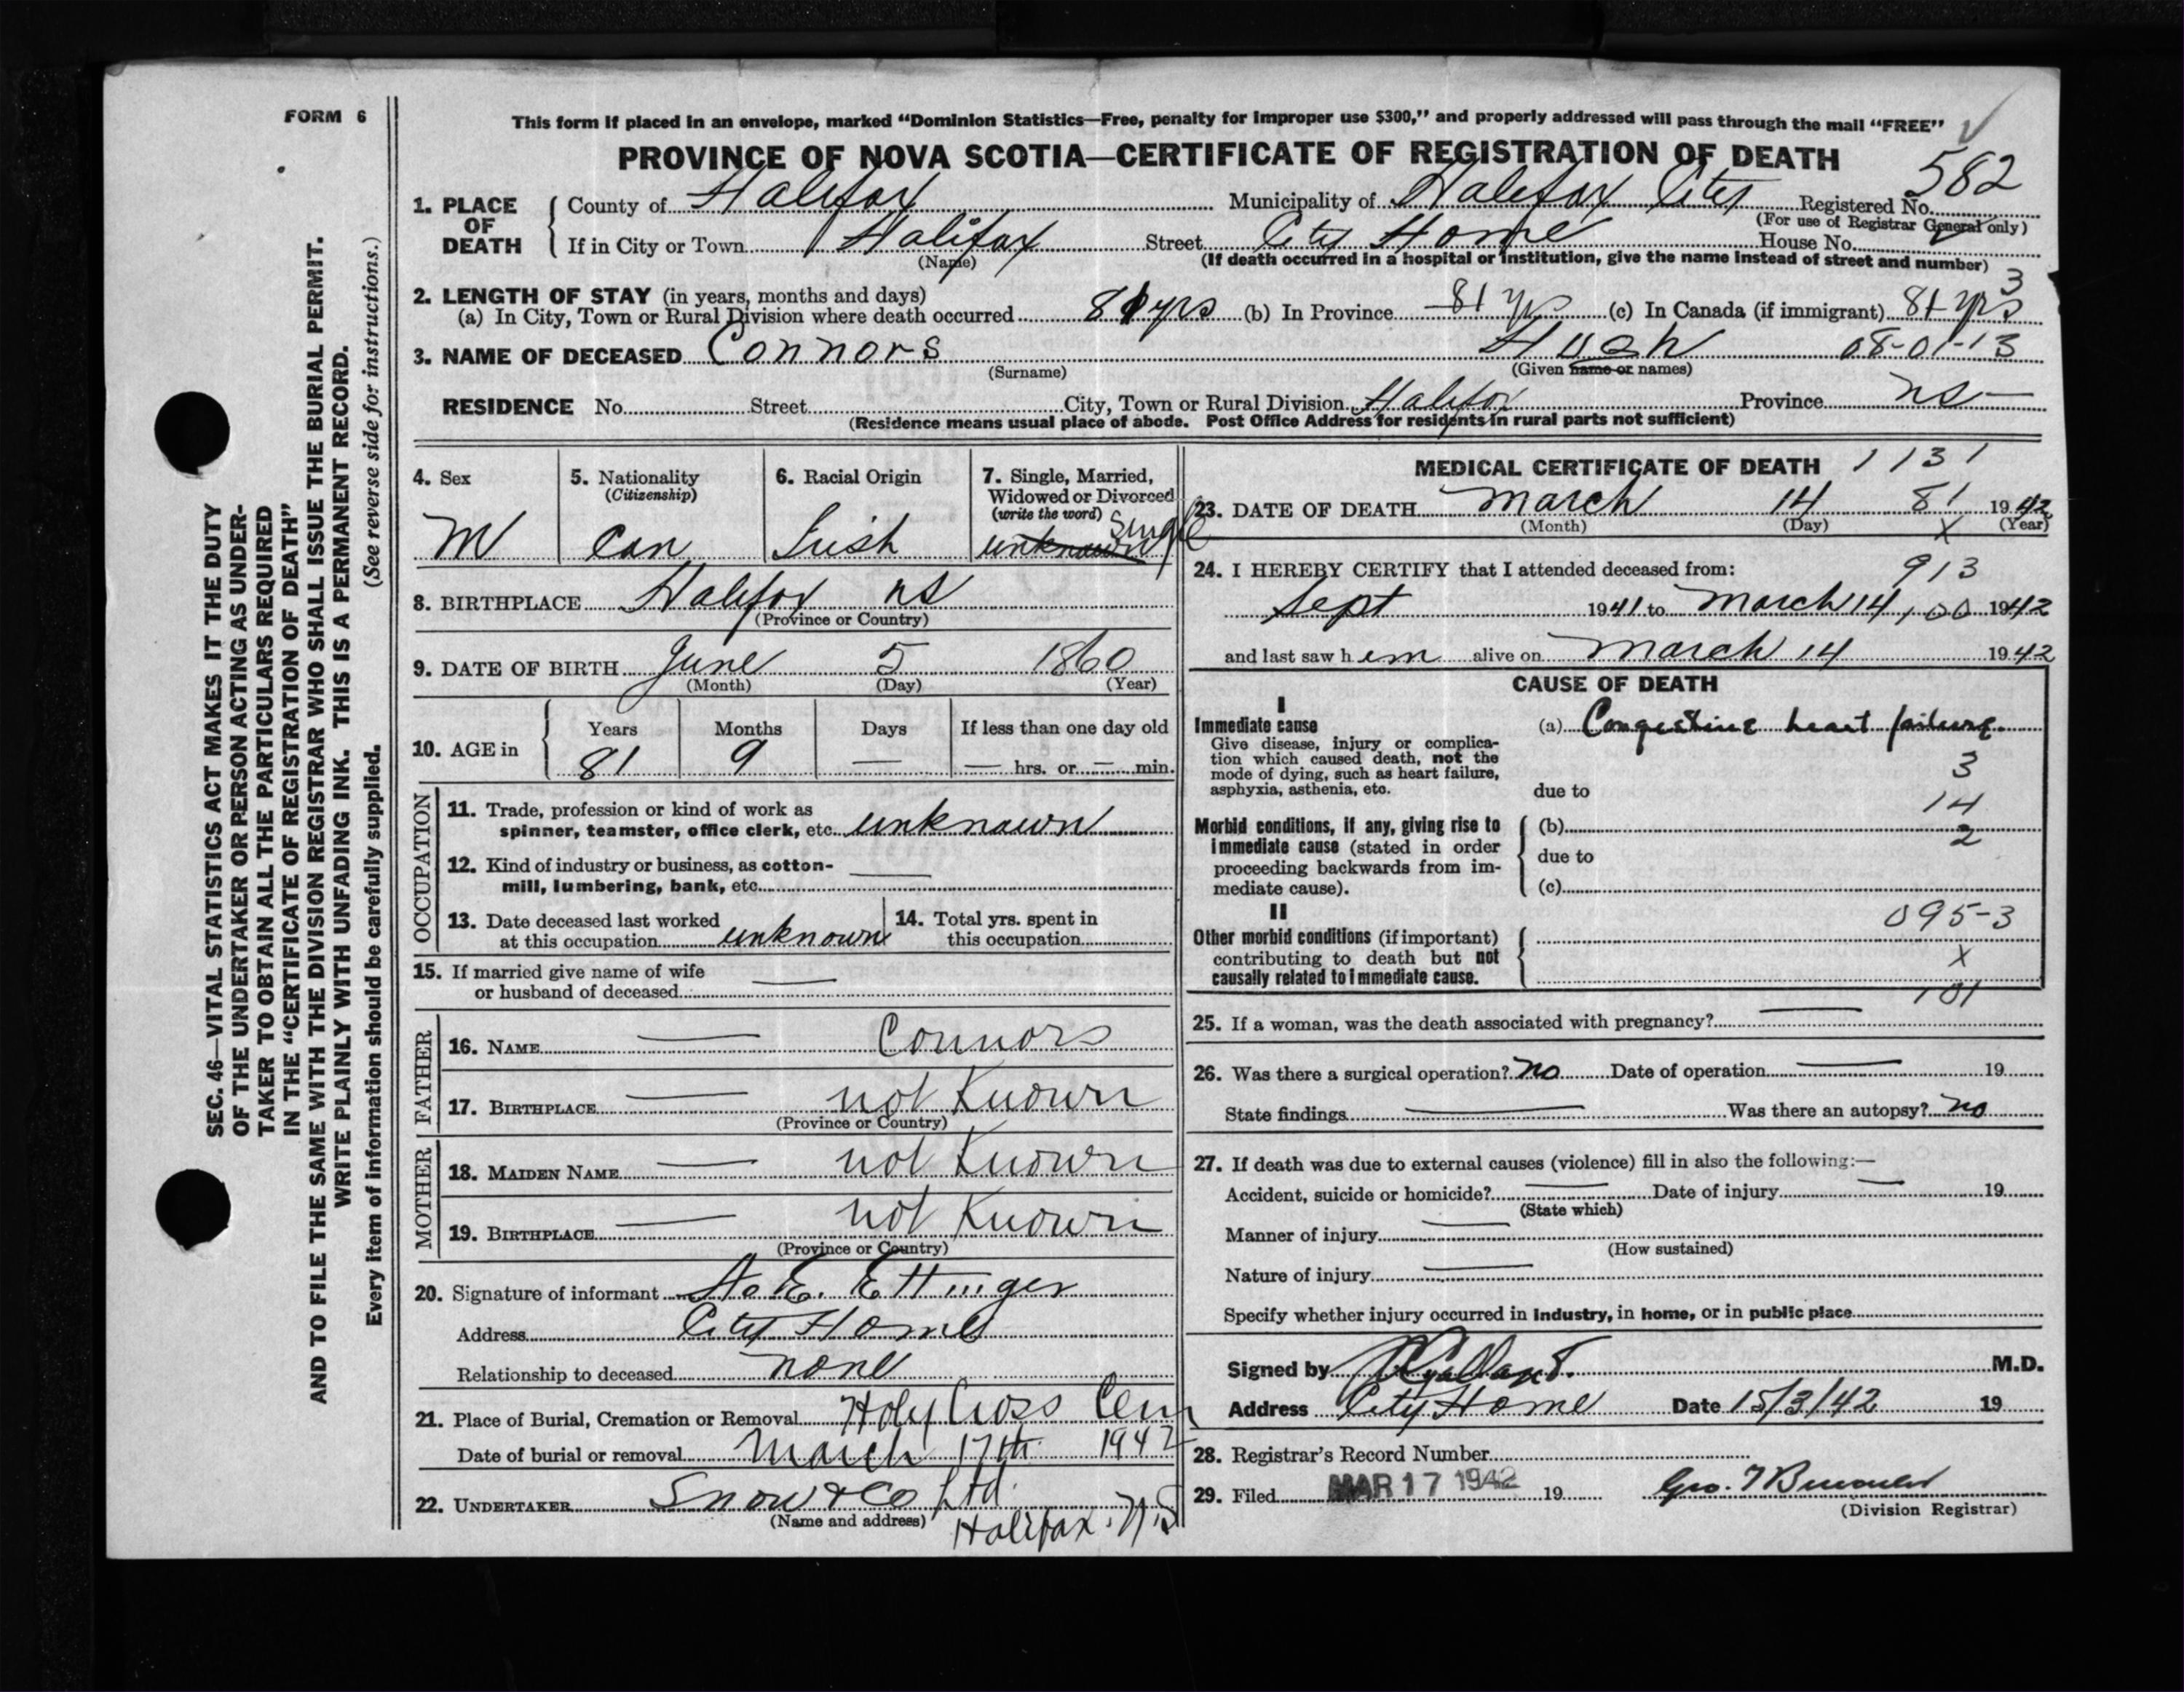 FORM 6
This form if placed in an envelope, marked “Dominion Statistics—Free, penalty for improper use $300,” and properly addressed will pass through the mail “FREE”
PROVINCE OF NOVA SCOTIA—CERTIFICATE OF REGISTRATION OF DEATH
582
1. PLACE OF DEATH { County of Halifax Municipality of Halifax City Registered No.
(For use of Registrar General only)
If in City or Town Halifax Street City Home House No.
(Name) (If death occurred in a hospital or institution, give the name instead of street and number)
3
2. LENGTH OF STAY (in years, months and days)
(a) In City, Town or Rural Division where death occurred 81 yrs (b) In Province 81 yrs (c) In Canada (if immigrant) 81 yrs
3. NAME OF DECEASED Connors Hugh 08-01-13
(Surname) (Given name or names)
RESIDENCE No. Street City, Town or Rural Division Halifax Province NS
(Residence means usual place of abode. Post Office Address for residents in rural parts not sufficient)
4. Sex 5. Nationality 6. Racial Origin 7. Single, Married,
(Citizenship) Widowed or Divorced
(write the word)
M Can Irish unknown Single
8. BIRTHPLACE Halifax NS
(Province or Country)
9. DATE OF BIRTH June 5 1860
(Month) (Day) (Year)
10. AGE in { Years Months Days If less than one day old
81 9 — — hrs. or — min.
OCCUPATION
11. Trade, profession or kind of work as
spinner, teamster, office clerk, etc. unknown
12. Kind of industry or business, as cotton-
mill, lumbering, bank, etc. —
13. Date deceased last worked 14. Total yrs. spent in
at this occupation unknown this occupation
15. If married give name of wife
or husband of deceased —
FATHER
16. NAME — Connors
17. BIRTHPLACE — not Known
(Province or Country)
MOTHER
18. MAIDEN NAME — not Known
19. BIRTHPLACE — not Known
(Province or Country)
20. Signature of informant E. Ettinger
Address City Home
Relationship to deceased none
21. Place of Burial, Cremation or Removal Holy Cross Cem
Date of burial or removal March 17th 1942
22. UNDERTAKER Snow & Co Ltd.
(Name and address) Halifax. N.S
MEDICAL CERTIFICATE OF DEATH 1131
23. DATE OF DEATH March 14 81 1942
(Month) (Day) X (Year)
24. I HEREBY CERTIFY that I attended deceased from: 913
Sept 1941 to March 14, 00 1942
and last saw h im alive on March 14 1942
CAUSE OF DEATH
I
Immediate cause (a) Congestive heart failure.
Give disease, injury or complica-
tion which caused death, not the 3
mode of dying, such as heart failure,
asphyxia, asthenia, etc. due to
14
Morbid conditions, if any, giving rise to { (b)
immediate cause (stated in order 2
proceeding backwards from im- due to
mediate cause). (c)
II
095-3
Other morbid conditions (if important)
contributing to death but not X
causally related to immediate cause.
101
25. If a woman, was the death associated with pregnancy? —
26. Was there a surgical operation? no Date of operation — 19
State findings — Was there an autopsy? no
27. If death was due to external causes (violence) fill in also the following:—
Accident, suicide or homicide? — Date of injury — 19
(State which)
Manner of injury —
(How sustained)
Nature of injury —
Specify whether injury occurred in industry, in home, or in public place
Signed by M.D.
Address City Home Date 15/3/42 19
28. Registrar's Record Number
29. Filed MAR 17 1942 19 Geo.
(Division Registrar)
SEC. 46—VITAL STATISTICS ACT MAKES IT THE DUTY
OF THE UNDERTAKER OR PERSON ACTING AS UNDER-
TAKER TO OBTAIN ALL THE PARTICULARS REQUIRED
IN THE “CERTIFICATE OF REGISTRATION OF DEATH”
AND TO FILE THE SAME WITH THE DIVISION REGISTRAR WHO SHALL ISSUE THE BURIAL PERMIT.
WRITE PLAINLY WITH UNFADING INK. THIS IS A PERMANENT RECORD.
Every item of information should be carefully supplied. (See reverse side for instructions.)